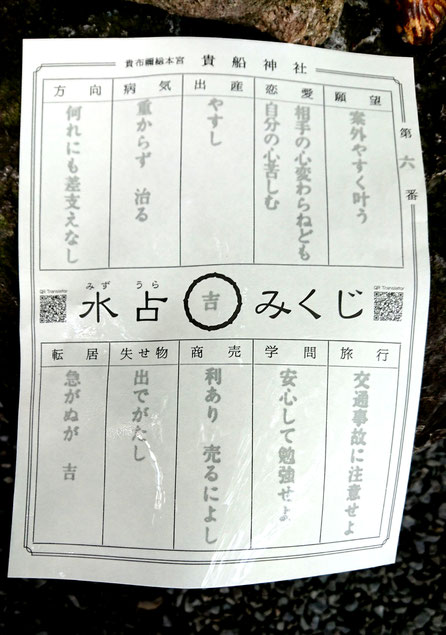 貴布禰総本宮 貴船神社
第六番
願望
案外やすく叶う
恋愛
相手の心変わらねども
自分の心苦しむ
出産
やすし
病気
重からず 治る
方向
何れにも差支えなし
QR Translator
みず うら
水占
吉
みくじ
QR Translator
旅行
交通事故に注意せよ
学問
安心して勉強せよ
商売
利あり 売るによし
失せ物
出でがたし
転居
急がぬが 吉